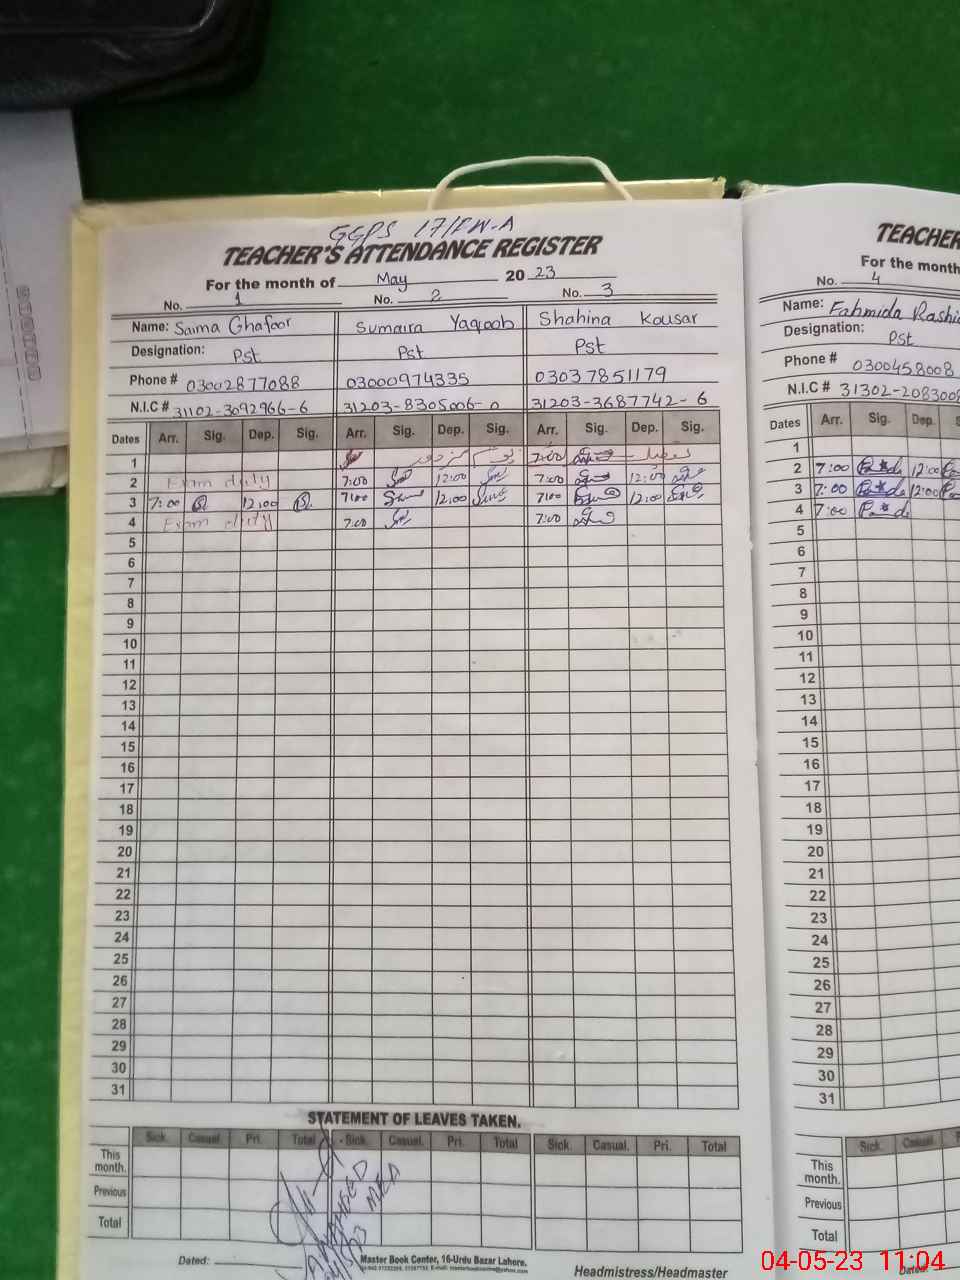 GGPS 17/FW-A
TEACHER'S ATTENDANCE REGISTER
For the month of May 2023
No. 1 No. 2 No. 3
Name: Saima Ghafoor Sumaira Yaqoob Shahina Kousar
Designation: Pst Pst Pst
Phone # 03002877088 03000974335 03037851179
N.I.C # 31102-3092966-6 31203-8305006-0 31203-3687742-6
Dates Arr. Sig. Dep. Sig. Arr. Sig. Dep. Sig. Arr. Sig. Dep. Sig.
1 یوم مزدور 7:00 تعطیل
2 Exam duty 7:00 12:00 7:00 12:00
3 7:00 12:00 7:00 12:00 7:00 12:00
4 Exam duty 7:00 7:00
5
6
7
8
9
10
11
12
13
14
15
16
17
18
19
20
21
22
23
24
25
26
27
28
29
30
31
STATEMENT OF LEAVES TAKEN.
Sick. Casual. Pri. Total Sick. Casual. Pri. Total Sick. Casual. Pri. Total
This month.
Previous
Total
MEA
Dated:
Master Book Center, 16-Urdu Bazar Lahore.
Headmistress/Headmaster
TEACHER
For the month
No. 4
Name: Fahmida Rashi
Designation: Pst
Phone # 0300458008
N.I.C # 31302-2083008
Dates Arr. Sig. Dep. S
1
2 7:00 12:00
3 7:00 12:00
4 7:00
5
6
7
8
9
10
11
12
13
14
15
16
17
18
19
20
21
22
23
24
25
26
27
28
29
30
31
Sick. Casual.
This month.
Previous
Total
Dated:
04-05-23 11:04